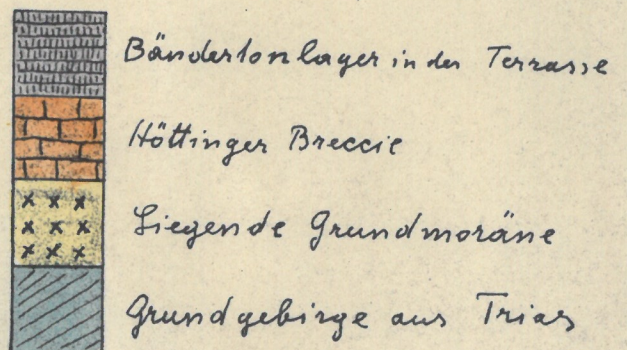 Bändertonlager in der Terrasse
Höttinger Breccie
Liegende Grundmoräne
Grundgebirge aus Trias